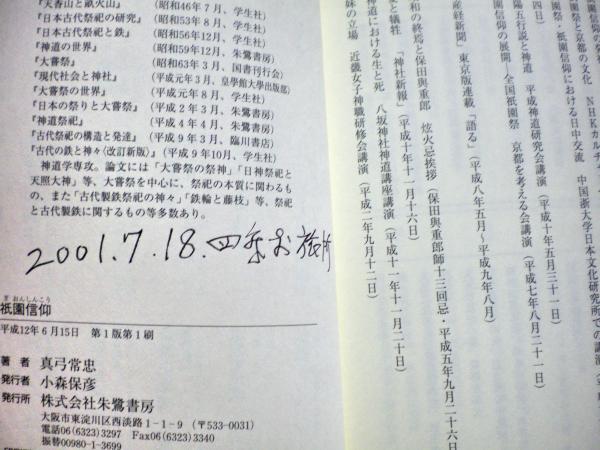 『天香山と畝火山』 （昭和46年7月、学生社）
『日本古代祭祀の研究』 （昭和53年8月、学生社）
『日本古代祭祀と鉄』 （昭和56年12月、学生社）
『神道の世界』 （昭和59年12月、朱鷺書房）
『大嘗祭』 （昭和63年3月、国書刊行会）
『現代社会と神社』 （平成元年3月、皇學館大學出版部）
『大嘗祭の世界』 （平成元年8月、学生社）
『日本の祭りと大嘗祭』 （平成2年3月、朱鷺書房）
『神道祭祀』 （平成4年4月、朱鷺書房）
『古代祭祀の構造と発達』 （平成9年3月、臨川書店）
『古代の鉄と神々〈改訂新版〉』 （平成9年10月、学生社）
神道学専攻。論文には「大嘗祭の祭神」「日神祭祀と
天照大神」等、大嘗祭を中心に、祭祀の本質に関わるも
の、また「古代製鉄祭祀の神々」「鉄輪と藤枝」等、祭祀
と古代製鉄に関するもの等多数あり。
2001.7.18.四条お旅所
ぎおんしんこう
祇園信仰
平成12年6月15日 第1版第1刷
著者 真弓常忠
発行者 小森保彦
発行所 株式会社朱鷺書房
大阪市東淀川区西淡路1-1-9（〒533-0031）
電話06(6323)3297 Fax06(6323)3340
振替00980-1-3699
祭・祇園信仰における日中交流 中国浙大学日本文化研究所での講演
園祭と京都の文化 NHKカルチ
園信仰の展開 全国祇園祭 京都を考える会講演（平成七年八月二十
陽五行説と神道 平成神道研究会講演（平成十年五月三十一日）
四日）
産経新聞』東京版連載「語る」（平成八年五月～平成九年八月）
和の終焉と保田與重郎 炫火忌挨拶（保田與重郎師十三回忌・平成五年九月二十六日
と犠牲 「神社新報」（平成十年十一月十六日）
神道における生と死 八坂神社神道講座講演（平成十一年十一月二十日）
妹の立場 近畿女子神職研修会講演（平成二年九月十二日）